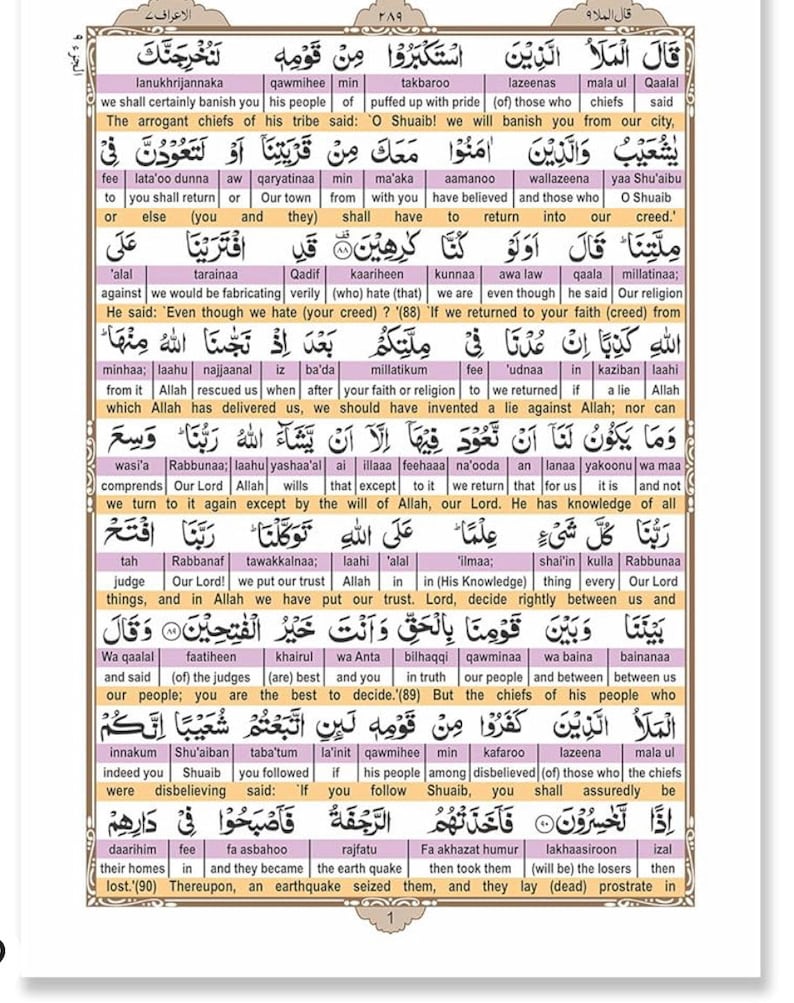 الاعراف٧
٢٨٩
قال الملا٩
الجزء ٩
قَالَ الْمَلَاُ الَّذِيْنَ اسْتَكْبَرُوْا مِنْ قَوْمِهٖ لَنُخْرِجَنَّكَ
lanukhrijannaka qawmihee min takbaroo lazeenas mala ul Qaalal
we shall certainly banish you his people of puffed up with pride (of) those who chiefs said
The arrogant chiefs of his tribe said: `O Shuaib! we will banish you from our city,
يٰشُعَيْبُ وَالَّذِيْنَ اٰمَنُوْا مَعَكَ مِنْ قَرْيَتِنَاۤ اَوْ لَتَعُوْدُنَّ فِيْ
fee lata'oo dunna aw qaryatinaa min ma'aka aamanoo wallazeena yaa Shu'aibu
to you shall return or Our town from with you have believed and those who O Shuaib
or else (you and they) shall have to return into our creed.'
مِلَّتِنَا ؕ قَالَ اَوَلَوْ كُنَّا كٰرِهِيْنَ ۟ۙ قف ﴿٨٨﴾ قَدِ افْتَرَيْنَا عَلَى
'alal tarainaa Qadif kaariheen kunnaa awa law qaala millatinaa;
against we would be fabricating verily (who) hate (that) we are even though he said Our religion
He said: `Even though we hate (your creed) ? '(88) `If we returned to your faith (creed) from
اللهِ كَذِبًا اِنْ عُدْنَا فِيْ مِلَّتِكُمْ بَعْدَ اِذْ نَجّٰىنَا اللهُ مِنْهَا ؕ
minhaa; laahu najjaanal iz ba'da millatikum fee 'udnaa in kaziban laahi
from it Allah rescued us when after your faith or religion to we returned if a lie Allah
which Allah has delivered us, we should have invented a lie against Allah; nor can
وَمَا يَكُوْنُ لَنَاۤ اَنْ نَّعُوْدَ فِيْهَاۤ اِلَّاۤ اَنْ يَّشَآءَ اللهُ رَبُّنَا ؕ وَسِعَ
wasi'a Rabbunaa; laahu yashaa'al ai illaaa feehaaa na'ooda an lanaa yakoonu wa maa
comprends Our Lord Allah wills that except to it we return that for us it is and not
we turn to it again except by the will of Allah, our Lord. He has knowledge of all
رَبُّنَا كُلَّ شَيْءٍ عِلْمًا ؕ عَلَى اللهِ تَوَكَّلْنَا ؕ رَبَّنَا افْتَحْ
tah Rabbanaf tawakkalnaa; laahi 'alal 'ilmaa; shai'in kulla Rabbunaa
judge Our Lord! we put our trust Allah in in (His Knowledge) thing every Our Lord
things, and in Allah we have put our trust. Lord, decide rightly between us and
بَيْنَنَا وَبَيْنَ قَوْمِنَا بِالْحَقِّ وَاَنْتَ خَيْرُ الْفٰتِحِيْنَ ﴿٨٩﴾ وَقَالَ
Wa qaalal faatiheen khairul wa Anta bilhaqqi qawminaa wa baina bainanaa
and said (of) the judges (are) best and you in truth our people and between between us
our people; you are the best to decide.'(89) But the chiefs of his people who
الْمَلَاُ الَّذِيْنَ كَفَرُوْا مِنْ قَوْمِهٖ لَىِٕنِ اتَّبَعْتُمْ شُعَيْبًا اِنَّكُمْ
innakum Shu'aiban taba'tum la'init qawmihee min kafaroo lazeena mala ul
indeed you Shuaib you followed if his people among disbelieved (of) those who the chiefs
were disbelieving said: `If you follow Shuaib, you shall assuredly be
اِذًا لَّخٰسِرُوْنَ ﴿٩٠﴾ فَاَخَذَتْهُمُ الرَّجْفَةُ فَاَصْبَحُوْا فِيْ دَارِهِمْ
daarihim fee fa asbahoo rajfatu Fa akhazat humur lakhaasiroon izal
their homes in and they became the earth quake then took them (will be) the losers then
lost.'(90) Thereupon, an earthquake seized them, and they lay (dead) prostrate in
1